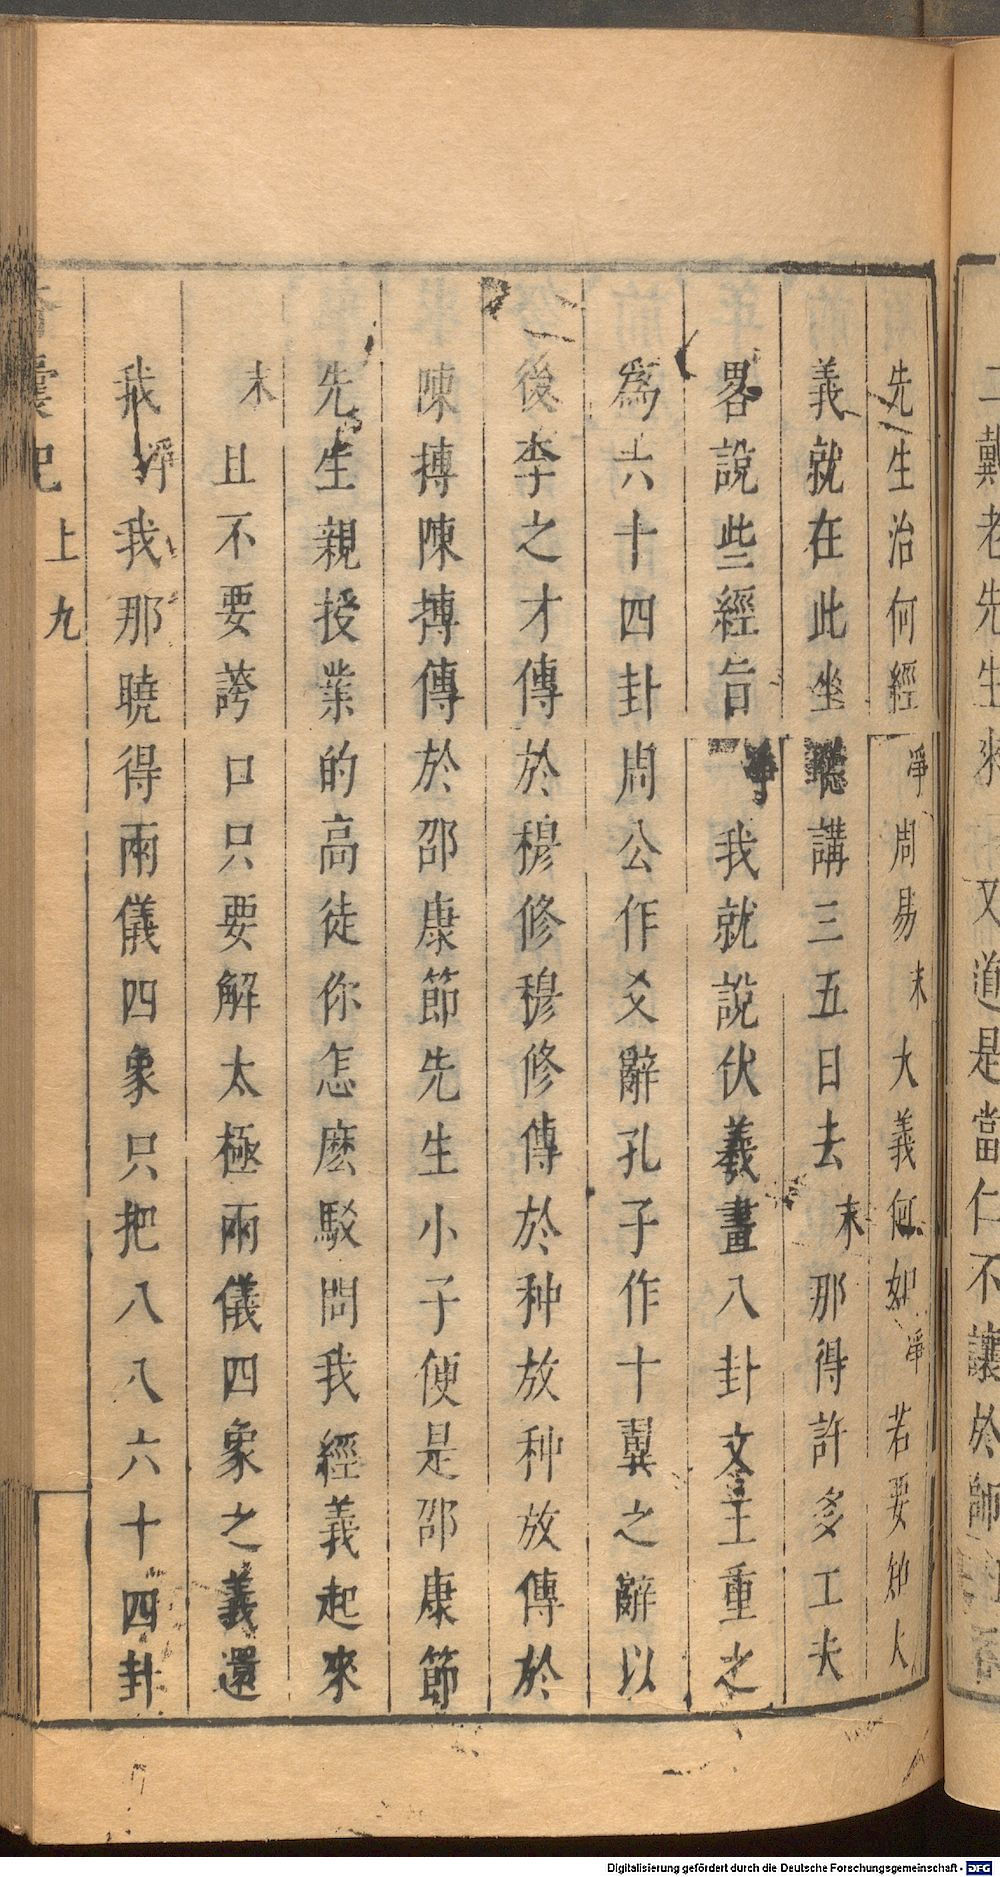 二戴老先生來 又道是當仁不讓於師
先生治何經淨周易末大義何如淨若要知大
義就在此坐聽講三五日去末那得許多工夫
畧說些經旨淨我就說伏羲畫八卦文王重之
爲六十四卦周公作爻辭孔子作十翼之辭以
後李之才傳於穆修穆修傳於种放种放傳於
陳摶陳摶傳於邵康節先生小子便是邵康節
先生親授業的高徒你怎麽駁問我經義起來
末且不要誇口只要解太極兩儀四象之義還
我淨我那曉得兩儀四象只把八八六十四卦
香囊記 上 九
Digitalisierung gefördert durch die Deutsche Forschungsgemeinschaft - DFG